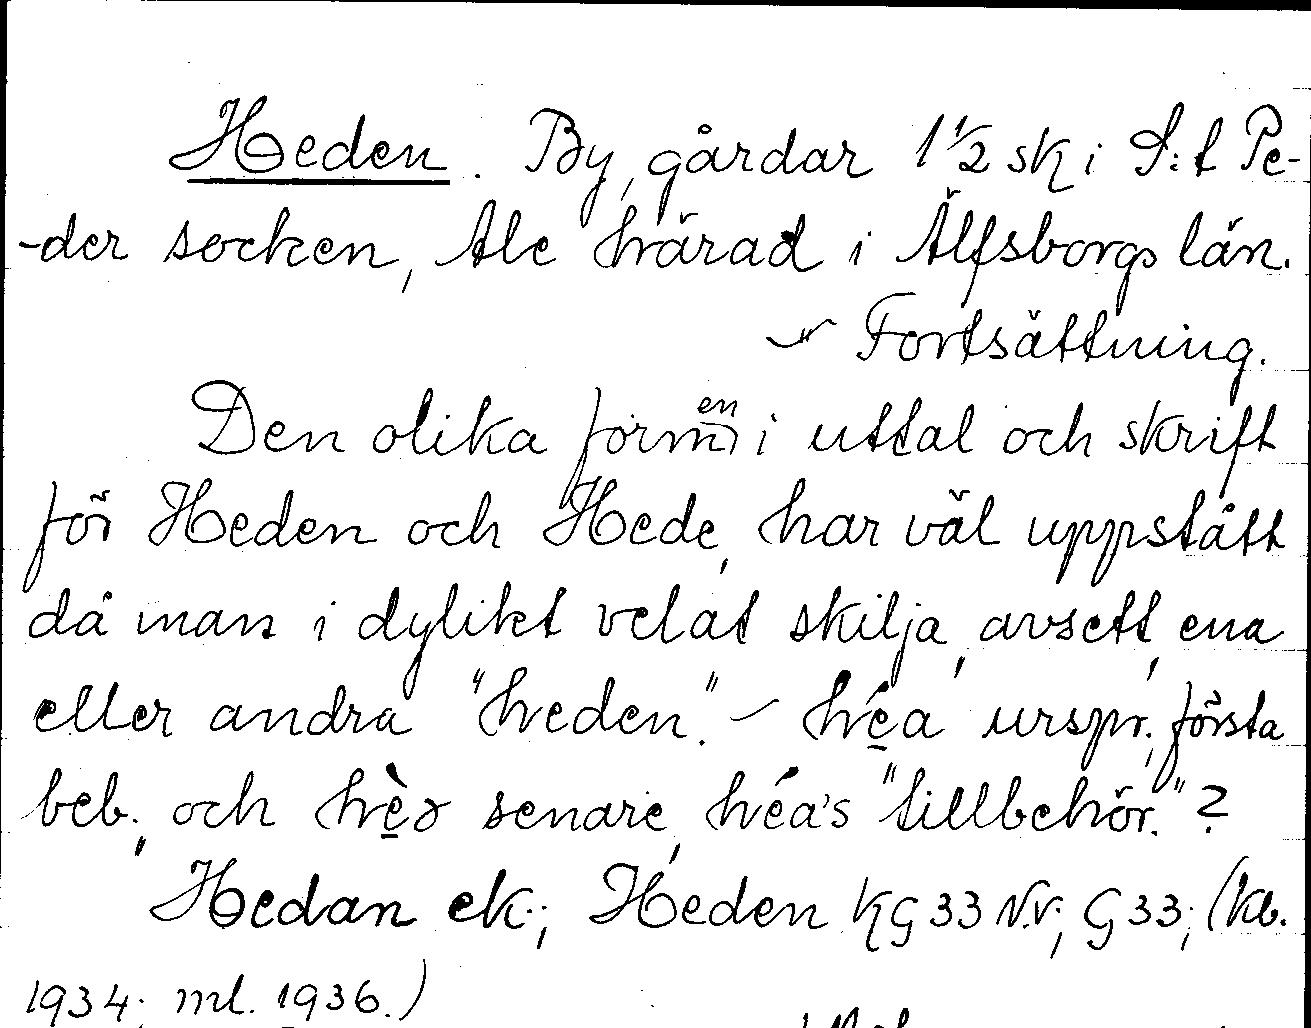 Heden. By, gårdar 1 1/2 sk i S:t Pe-
-der socken, Ale härad i Älfsborgs län.
~ Fortsättning.
Den olika formen i uttal och skrift
för Heden och Hede, har väl uppstått
då man i dylikt velat skilja, avsett, ena
eller andra "heden". – héa urspr. första
beb., och hèə senare, héa's "tillbehör."?
Hedan ek.; Heden KG 33 N.V.; G 33; (kb.
1934; ml. 1936.)